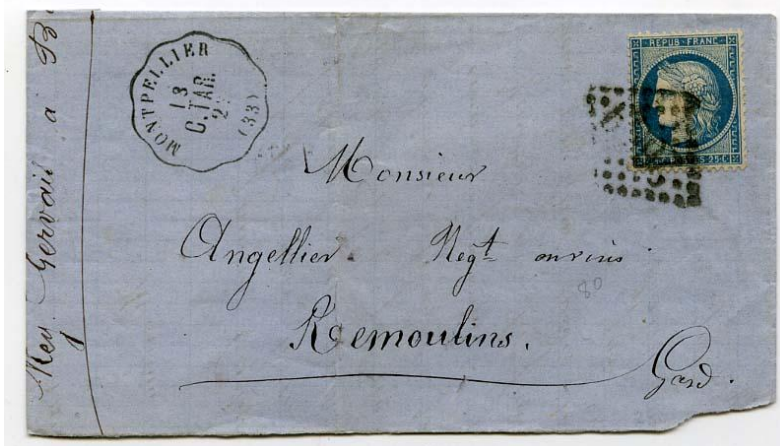 Rey. Gervais a B
MONTPELLIER
13
C.TAR.
(33)
REPUB. FRANC.
25 C
Monsieur
Angellier. Negt. en vins
80
Remoulins.
Gard.